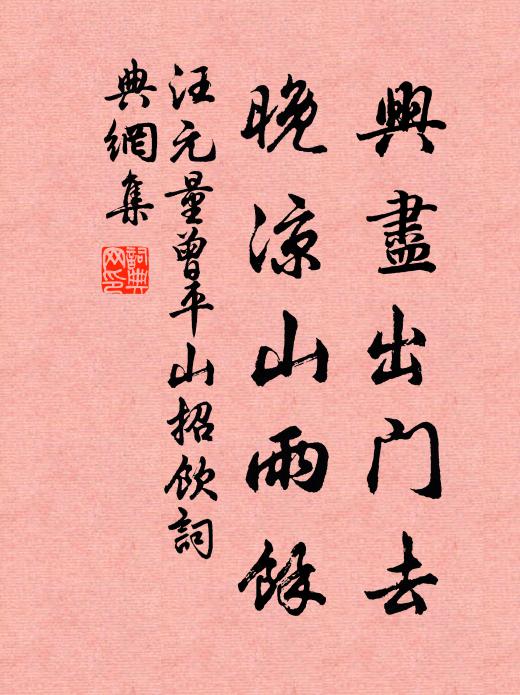 興盡出門去
晚涼山雨餘
汪元量曾平山招飲詞
典網集
詞典網印